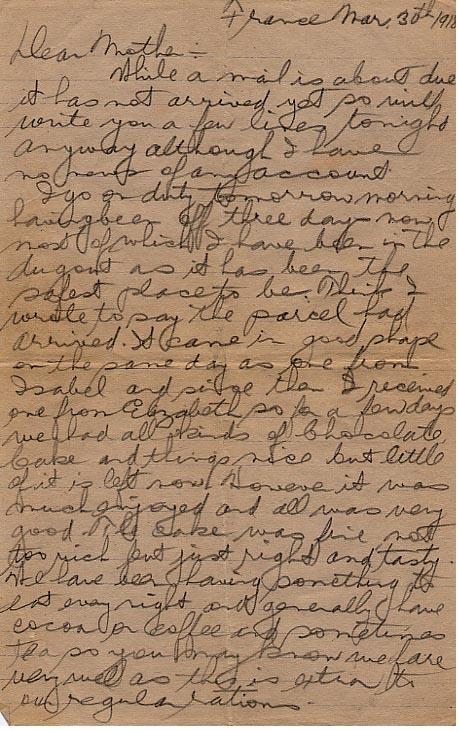 France Mar. 30th/1918
Dear Mother:-
While a mail is about due
it has not arrived yet so will
write you a few lines tonight
anyway although I have
no news of any account.
I go on duty tomorrow morning
having been off three days now,
most of which I have been in the
dugout as it has been the
safest place to be. Think I
wrote to say the parcel had
arrived. It came in good shape
on the same day as one from
Isabel and since then I received
one from Elizabeth so for a few days
we had all kinds of Chocolate,
Cake and things nice but little
of it is left now. However it was
much enjoyed and all was very
good. The cake was fine not
too rich but just right and tasty.
We have been having something to
eat every night and generally have
cocoa or coffee and sometimes
tea so you may know we fare
very well as this is extra to
our regular rations.